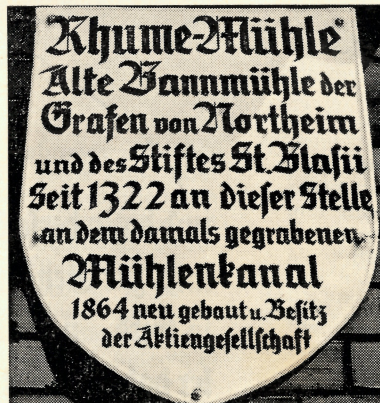 Rhume-Mühle
Alte Bannmühle der
Grafen von Northeim
und des Stiftes St. Blasii
Seit 1322 an dieser Stelle
an dem damals gegrabenen
Mühlenkanal
1864 neu gebaut u. Besitz
der Aktiengesellschaft